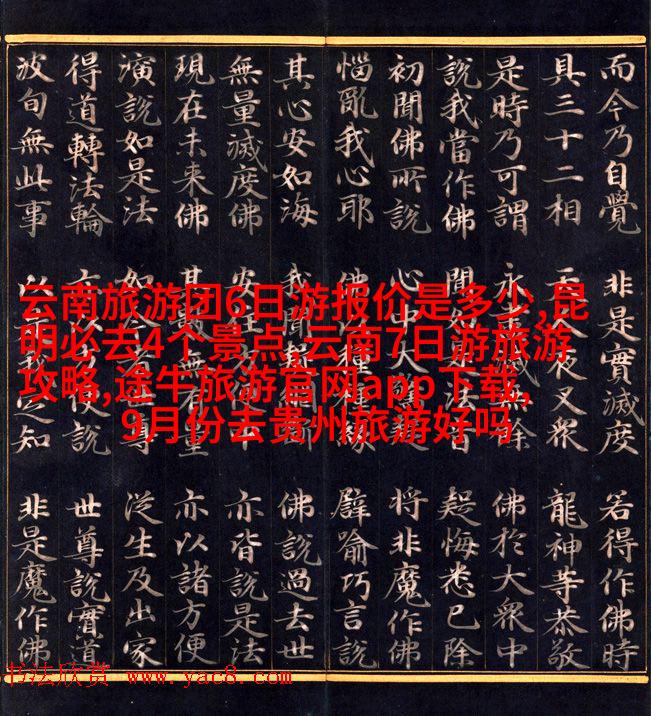 而今乃自覺 非是實滅度 若得作佛時
具三十二相 夜叉眾 龍神等恭敬
是時乃可謂 永滅無餘 佛於大眾中
說我當作佛 聞如是法音 疑悔悉已除
初聞佛所說 心中大 將非魔作佛
惱亂我心耶 佛種緣 譬喻巧言說
其心安如海 我聞疑斷 佛說過去世
無量滅度佛 安住中 亦皆說是法
現在未來佛 其數無有量 亦以諸方便
演說如是法 如今者尊 從生及出家
得道轉法輪 亦以方便說 世尊說實道
波旬無此事 以是我定知 非是魔作佛
云南旅游团6日游报价是多少,昆
明必去4个景点,云南7日游旅游
攻略,途牛旅游官网app下载,
9月份去贵州旅游好吗
书法欣赏 www.yac8.com